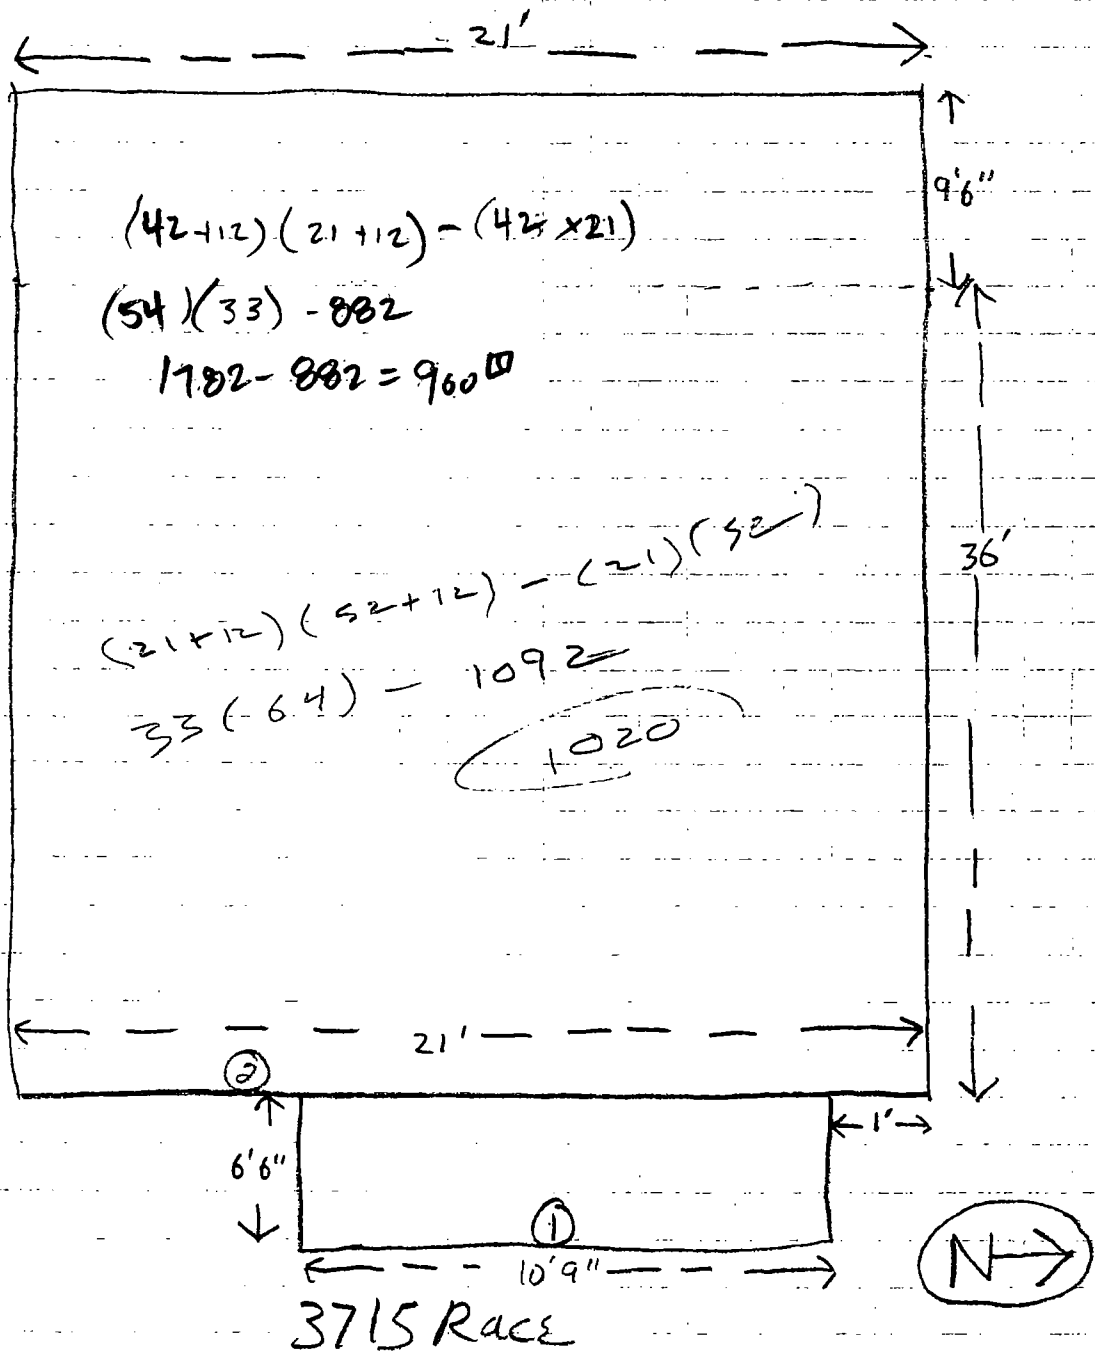 21'
9'6"
(42+12)(21+12)-(42×21)
(54)(33)-882
1782-882=900
36'
(21+12)(52+12)-(21)(52)
33(64)-1092
1020
21'
②
1'
6'6"
①
10'9"
N
3715 Race